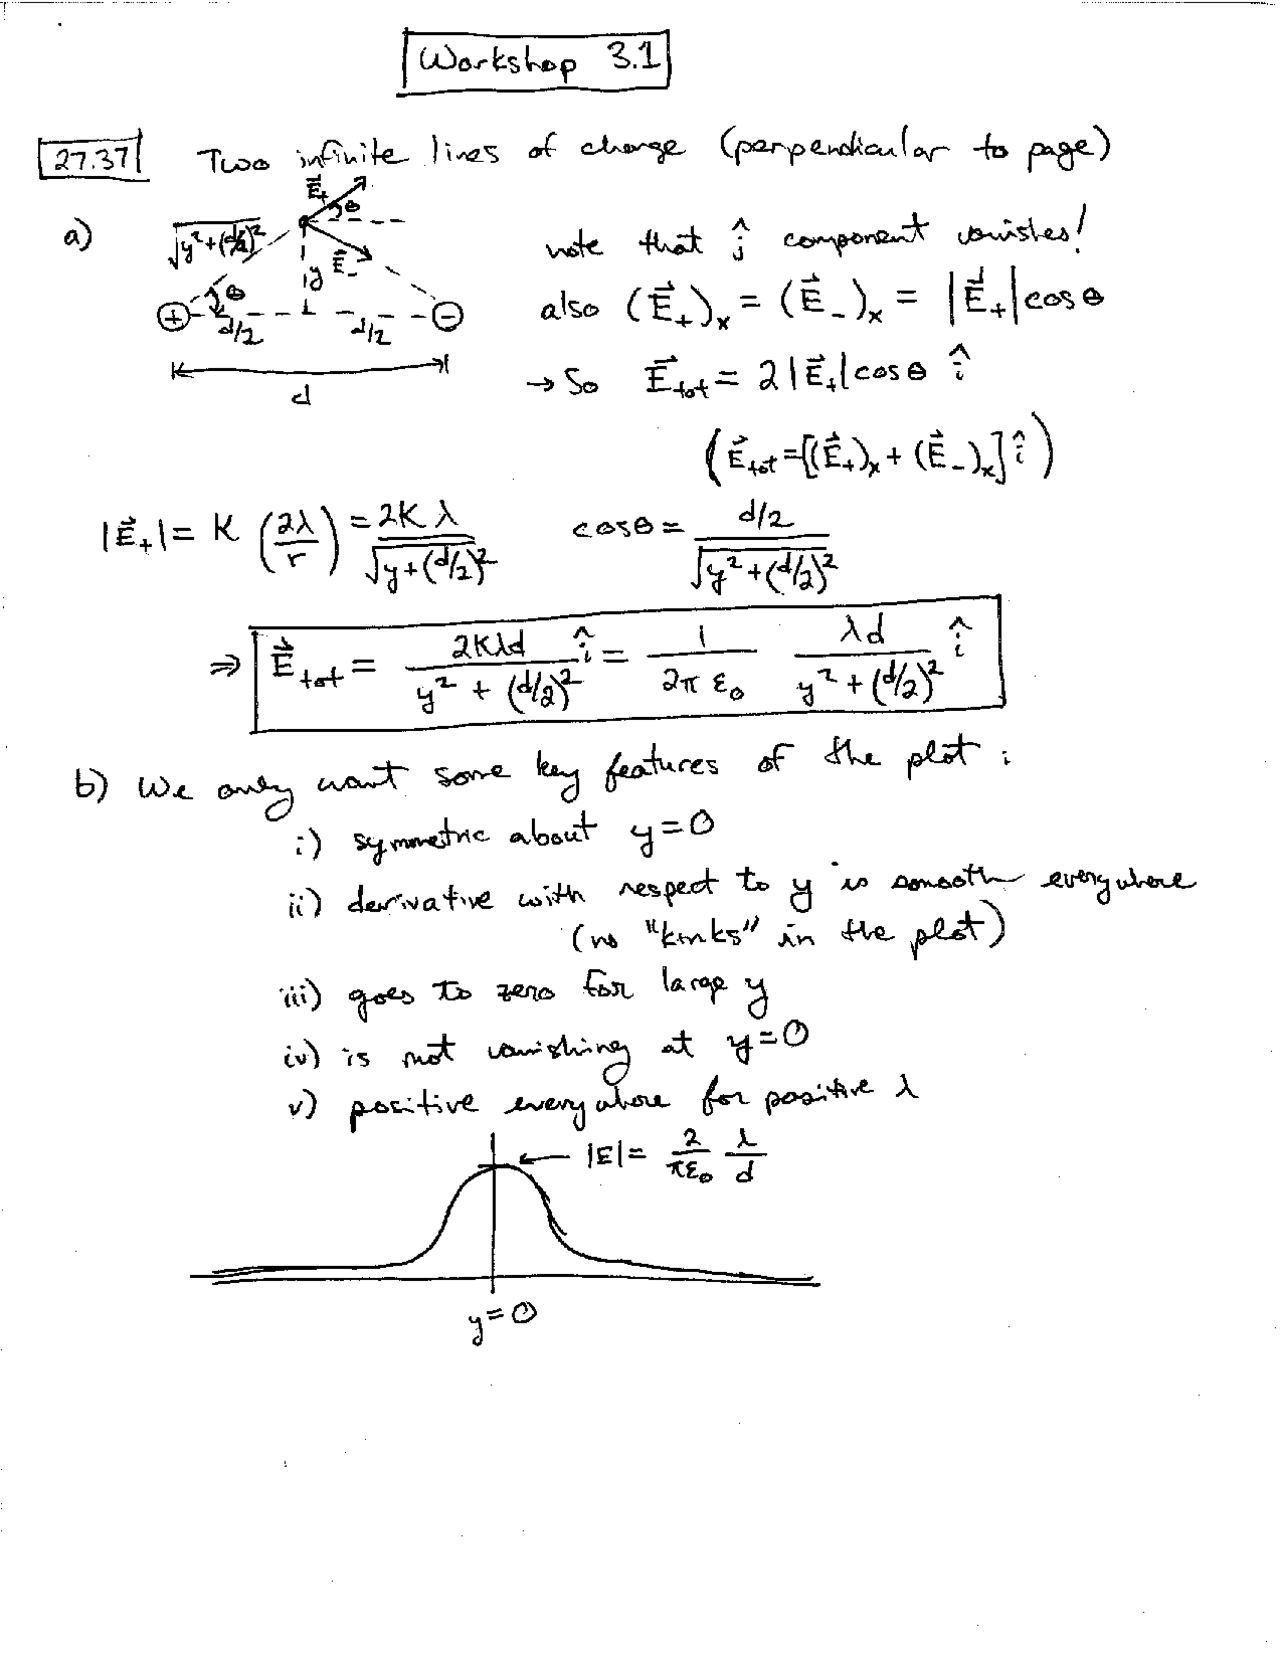 Workshop 3.1
27.37 Two infinite lines of charge (perpendicular to page)
a) √y²+(d/2)² E⃗₊ θ
E⃗₋ y θ
+ d/2 d/2 −
d
note that ĵ component vanishes!
also (E⃗₊)ₓ = (E⃗₋)ₓ = |E⃗₊|cosθ
→ So E⃗tot = 2|E⃗₊|cosθ î
(E⃗tot = [(E⃗₊)ₓ + (E⃗₋)ₓ] î)
|E⃗₊| = K (2λ/r) = 2Kλ/√y+(d/2)² cosθ = d/2/√y²+(d/2)²
⇒ E⃗tot = 2Kλd/y² + (d/2)² î = 1/2π ε₀ λd/y² + (d/2)² î
b) We only want some key features of the plot:
i) symmetric about y=0
ii) derivative with respect to y is smooth everywhere
(no "kinks" in the plot)
iii) goes to zero for large y
iv) is not vanishing at y=0
v) positive everywhere for positive λ
← |E| = 2/πε₀ λ/d
y=0